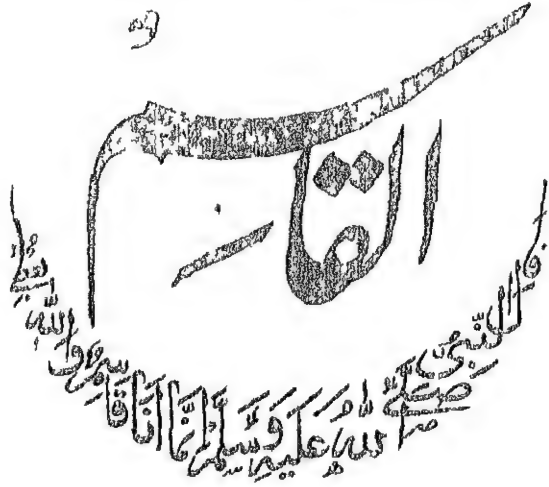 القاسم
قال النبی صلی الله علیه وسلم انما انا قاسم والله یعطی